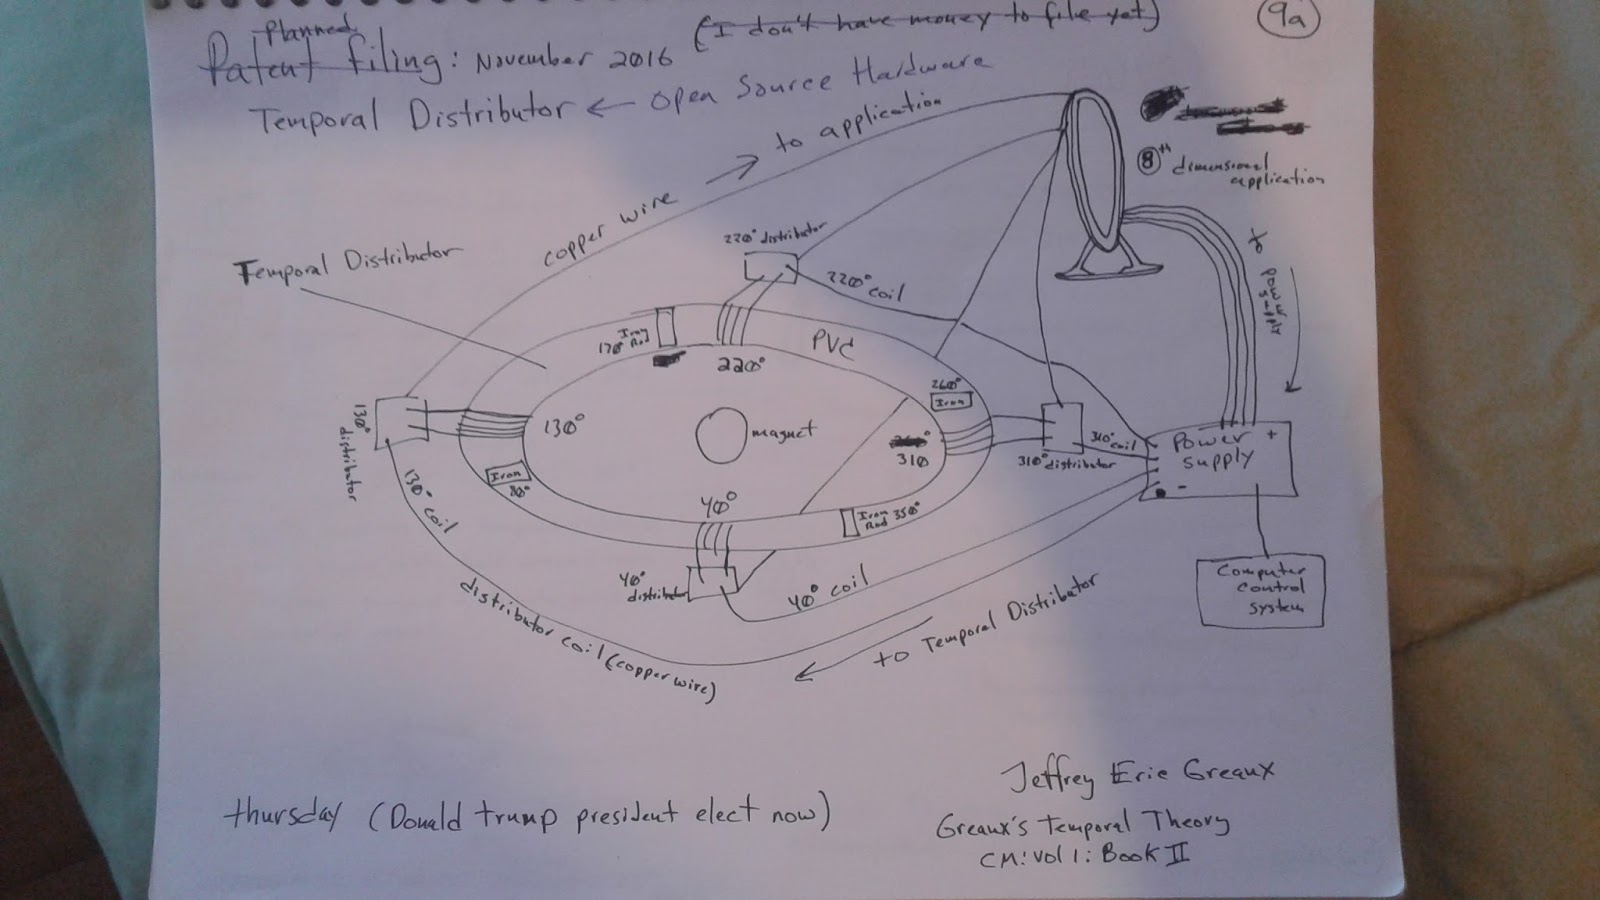 Planned
Patent filing: November 2016
(I don't have money to file yet)
9a
Temporal Distributor ← Open Source Hardware
to application
copper wire
8th dimensional
application
Temporal Distributor
220° distributor
220° coil
to power
supply
Iron
Rod
170°
220°
PVC
260°
Iron
130°
distributor
130°
magnet
310
310° coil
310° distributor
Power +
supply
-
Iron
80°
130° coil
40°
Iron
Rod 350°
40°
distributor
40° coil
Computer
Control
System
distributor coil (copper wire)
to Temporal Distributor
Jeffrey Eric Greaux
thursday (Donald trump president elect now)
Greaux's Temporal Theory
CM: Vol 1: Book II